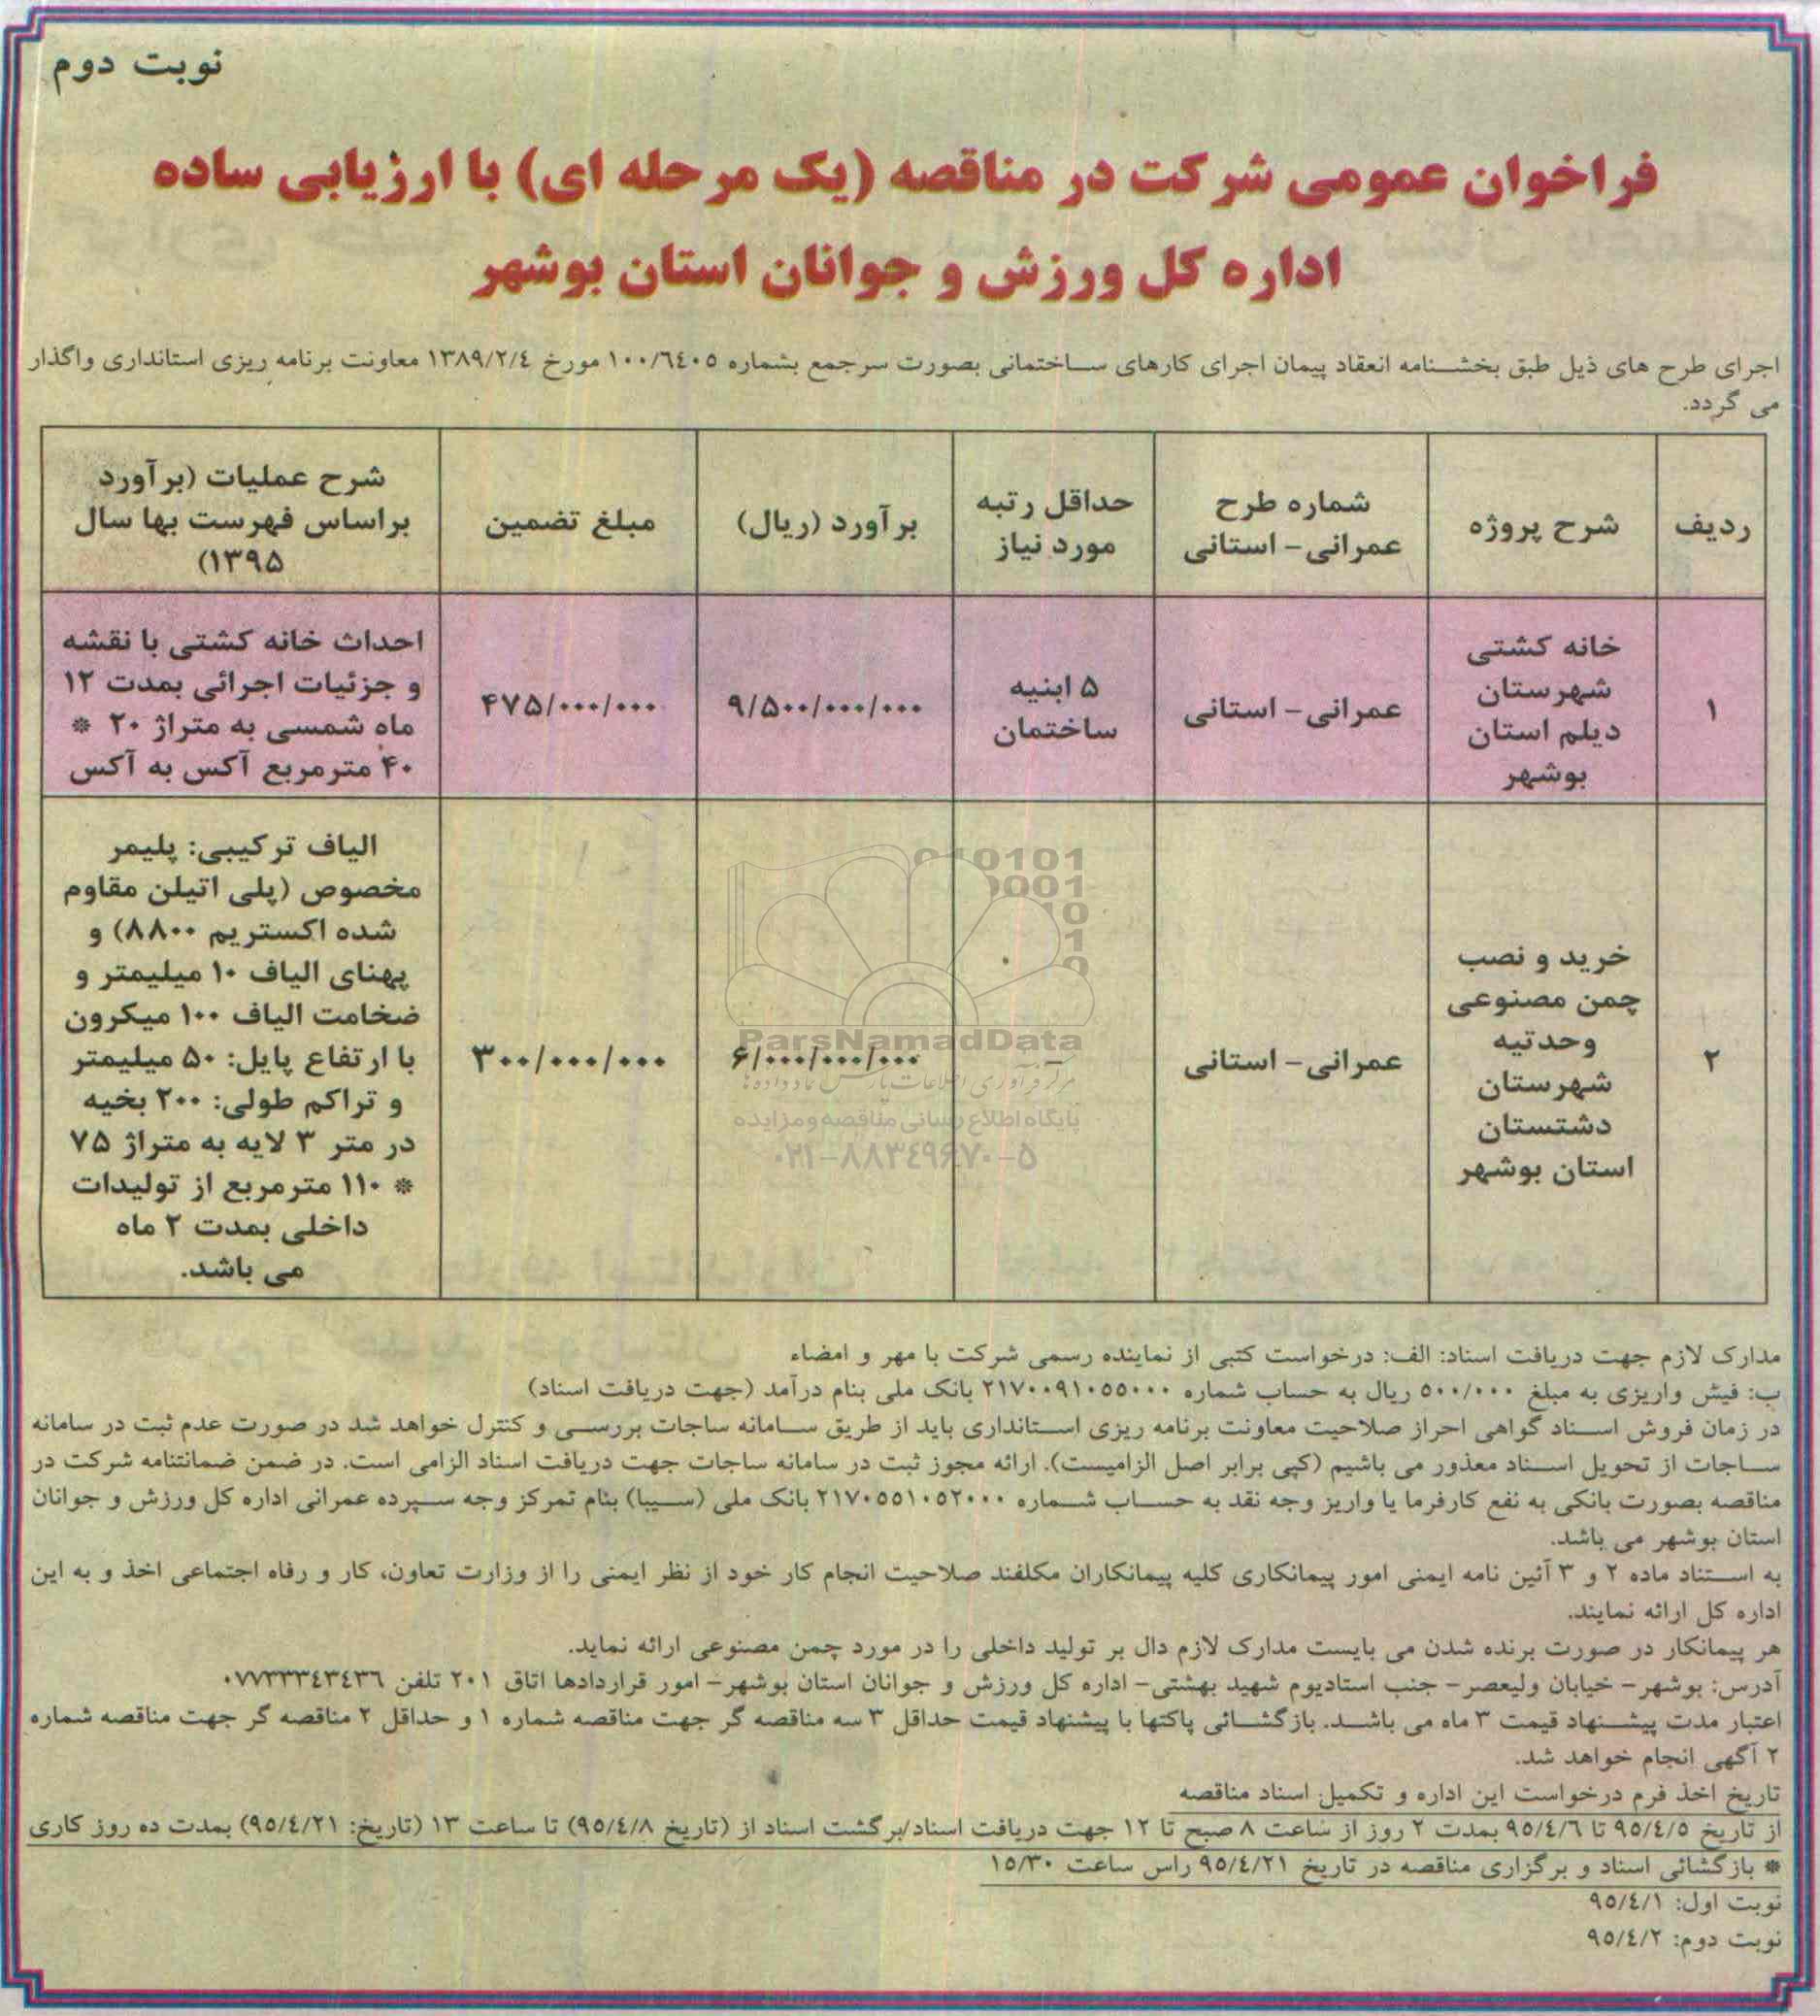 نوبت دوم
فراخوان عمومی شرکت در مناقصه (یک مرحله ای) با ارزیابی ساده
اداره کل ورزش و جوانان استان بوشهر
اجرای طرح های ذیل طبق بخشنامه انعقاد پیمان اجرای کارهای ساختمانی بصورت سرجمع بشماره ۱۰۰/۶۴۰۵ مورخ ۱۳۸۹/۲/۴ معاونت برنامه ریزی استانداری واگذار
می گردد.
ردیف
شرح پروژه
شماره طرح
عمرانی- استانی
حداقل رتبه
مورد نیاز
برآورد (ریال)
مبلغ تضمین
شرح عملیات (برآورد
براساس فهرست بها سال
۱۳۹۵)
۱
خانه کشتی
شهرستان
دیلم استان
بوشهر
عمرانی- استانی
۵ ابنیه
ساختمان
۹/۵۰۰/۰۰۰/۰۰۰
۴۷۵/۰۰۰/۰۰۰
احداث خانه کشتی با نقشه
و جزئیات اجرائی بمدت ۱۲
ماه شمسی به متراژ ۲۰ *
۴۰ مترمربع آکس به آکس
۲
خرید و نصب
چمن مصنوعی
وحدتیه
شهرستان
دشتستان
استان بوشهر
عمرانی- استانی
-
۶/۰۰۰/۰۰۰/۰۰۰
۳۰۰/۰۰۰/۰۰۰
الیاف ترکیبی: پلیمر
مخصوص (پلی اتیلن مقاوم
شده اکستریم ۸۸۰۰) و
پهنای الیاف ۱۰ میلیمتر و
ضخامت الیاف ۱۰۰ میکرون
با ارتفاع پایل: ۵۰ میلیمتر
و تراکم طولی: ۲۰۰ بخیه
در متر ۳ لایه به متراژ ۷۵
* ۱۱۰ مترمربع از تولیدات
داخلی بمدت ۲ ماه
می باشد.
ParsNamadData
مرکز فرآوری اطلاعات پارس نماد داده ها
پایگاه اطلاع رسانی مناقصه و مزایده
۰۲۱-۸۸۳۴۹۶۷۰-۵
مدارک لازم جهت دریافت اسناد: الف: درخواست کتبی از نماینده رسمی شرکت با مهر و امضاء
ب: فیش واریزی به مبلغ ۵۰۰/۰۰۰ ریال به حساب شماره ۲۱۷۰۰۹۱۰۵۵۰۰۰ بانک ملی بنام درآمد (جهت دریافت اسناد)
در زمان فروش اسناد گواهی احراز صلاحیت معاونت برنامه ریزی استانداری باید از طریق سامانه ساجات بررسی و کنترل خواهد شد در صورت عدم ثبت در سامانه
ساجات از تحویل اسناد معذور می باشیم (کپی برابر اصل الزامیست). ارائه مجوز ثبت در سامانه ساجات جهت دریافت اسناد الزامی است. در ضمن ضمانتنامه شرکت در
مناقصه بصورت بانکی به نفع کارفرما یا واریز وجه نقد به حساب شماره ۲۱۷۰۵۵۱۰۵۲۰۰۰ بانک ملی (سیبا) بنام تمرکز وجه سپرده عمرانی اداره کل ورزش و جوانان
استان بوشهر می باشد.
به استناد ماده ۲ و ۳ آئین نامه ایمنی امور پیمانکاری کلیه پیمانکاران مکلفند صلاحیت انجام کار خود از نظر ایمنی را از وزارت تعاون، کار و رفاه اجتماعی اخذ و به این
اداره کل ارائه نمایند.
هر پیمانکار در صورت برنده شدن می بایست مدارک لازم دال بر تولید داخلی را در مورد چمن مصنوعی ارائه نماید.
آدرس: بوشهر- خیابان ولیعصر- جنب استادیوم شهید بهشتی- اداره کل ورزش و جوانان استان بوشهر- امور قراردادها اتاق ۲۰۱ تلفن ۰۷۷۳۳۳۴۳۴۳۶
اعتبار مدت پیشنهاد قیمت ۳ ماه می باشد. بازگشائی پاکتها با پیشنهاد قیمت حداقل ۳ سه مناقصه گر جهت مناقصه شماره ۱ و حداقل ۲ مناقصه گر جهت مناقصه شماره
۲ آگهی انجام خواهد شد.
تاریخ اخذ فرم درخواست این اداره و تکمیل اسناد مناقصه
از تاریخ ۹۵/۴/۵ تا ۹۵/۴/۶ بمدت ۲ روز از ساعت ۸ صبح تا ۱۲ جهت دریافت اسناد/برگشت اسناد از (تاریخ ۹۵/۴/۸) تا ساعت ۱۳ (تاریخ: ۹۵/۴/۲۱) بمدت ده روز کاری
* بازگشائی اسناد و برگزاری مناقصه در تاریخ ۹۵/۴/۲۱ راس ساعت ۱۵/۳۰
نوبت اول: ۹۵/۴/۱
نوبت دوم: ۹۵/۴/۲